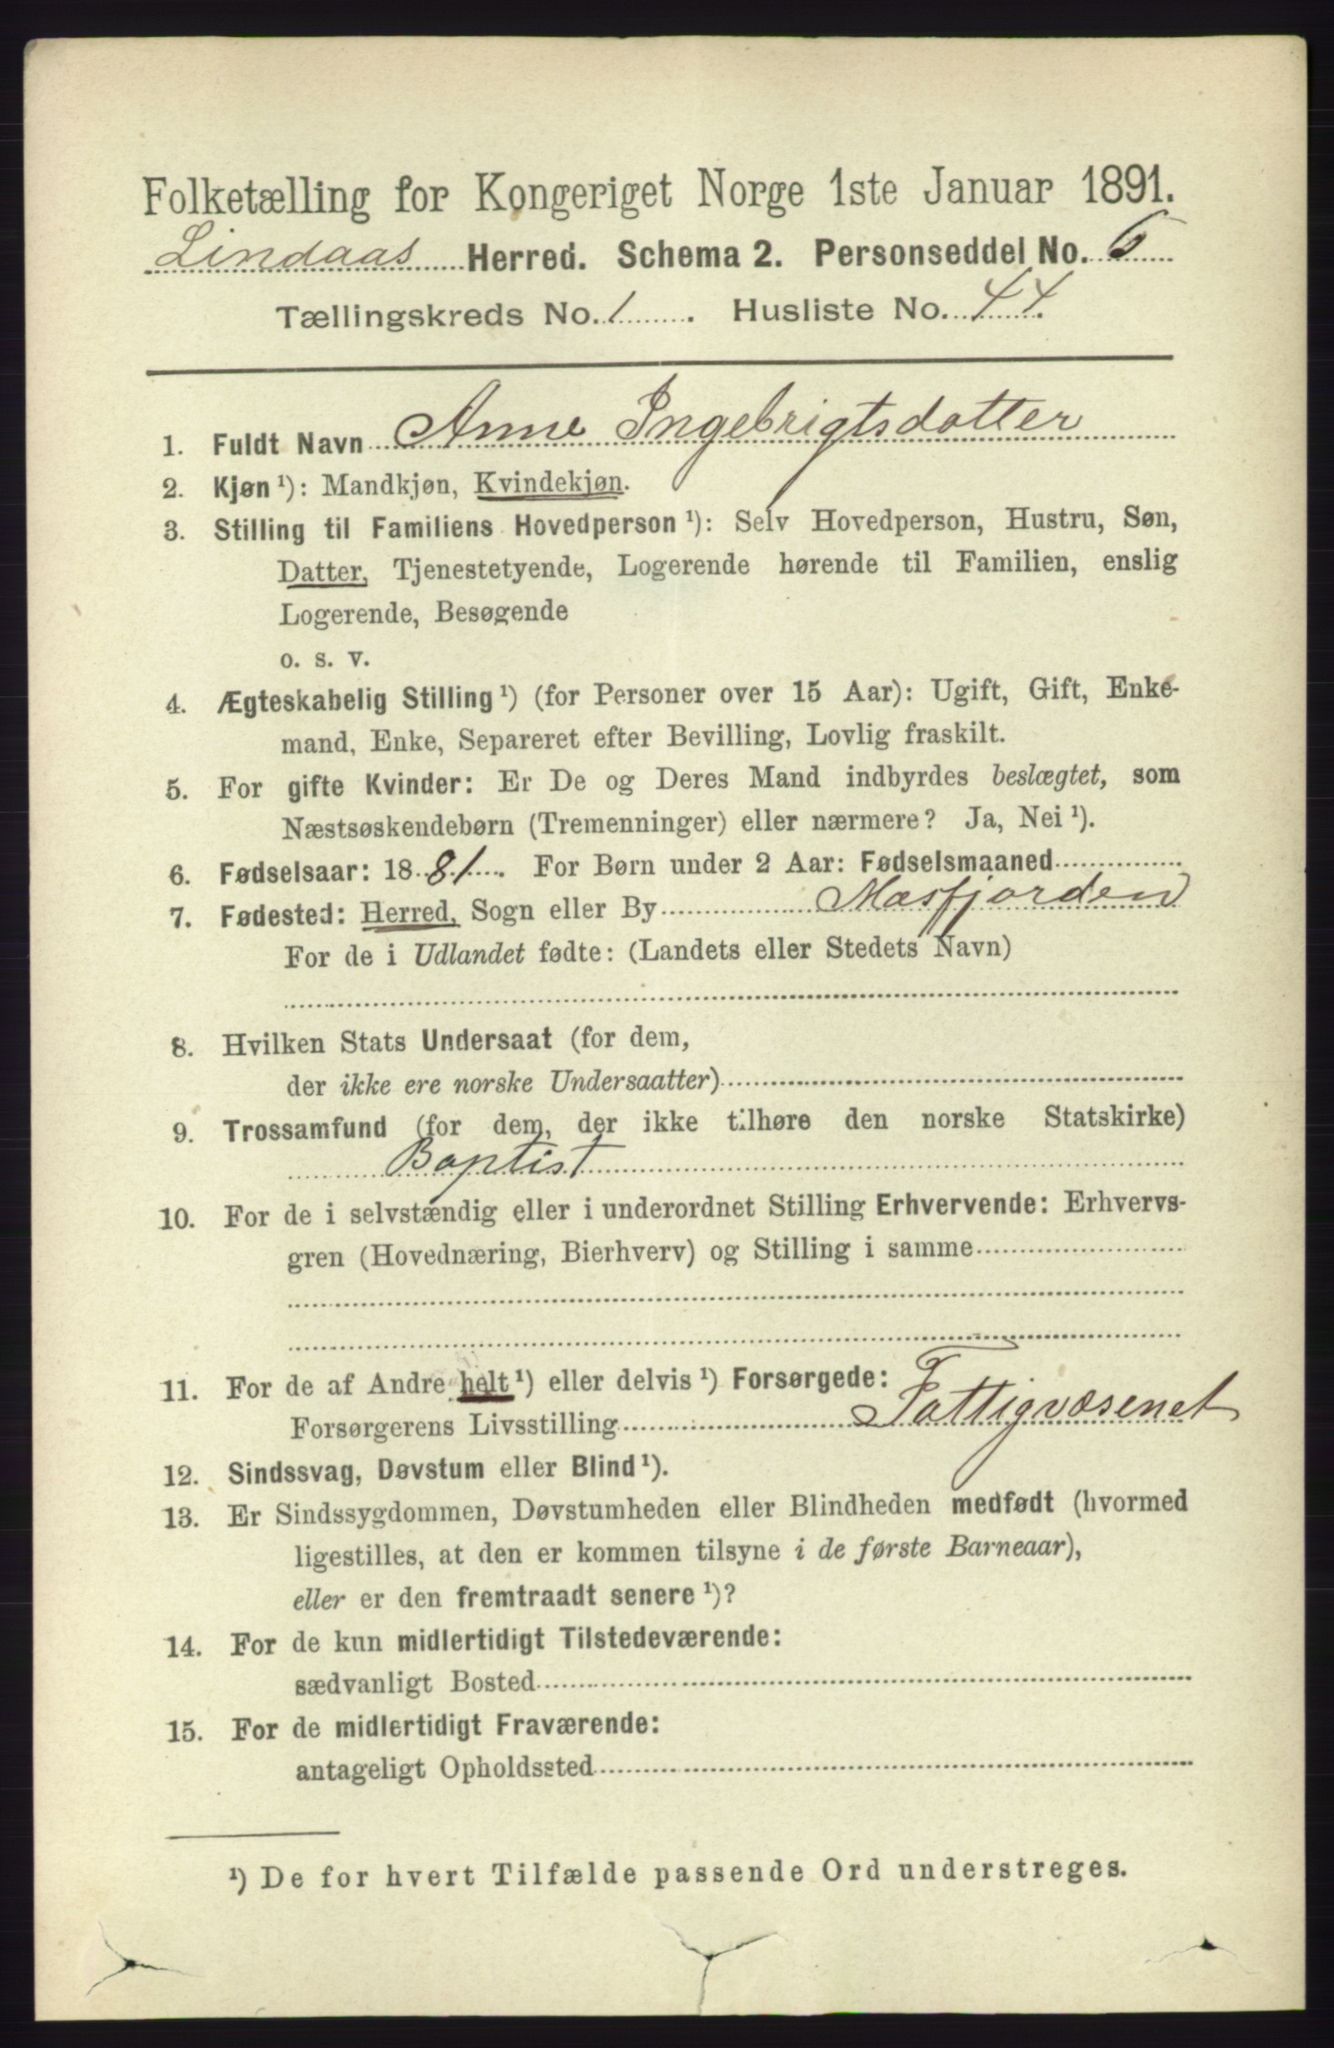 Folketælling for Kongeriget Norge 1ste Januar 1891.
Lindaas Herred. Schema 2. Personseddel No. 6
Tællingskreds No. 1. Husliste No. 44.
1. Fuldt Navn Anne Ingebrigtsdatter
2. Kjøn ¹): Mandkjøn, Kvindekjøn.
3. Stilling til Familiens Hovedperson ¹): Selv Hovedperson, Hustru, Søn,
Datter, Tjenestetyende, Logerende hørende til Familien, enslig
Logerende, Besøgende
o. s. v.
4. Ægteskabelig Stilling ¹) (for Personer over 15 Aar): Ugift, Gift, Enke-
mand, Enke, Separeret efter Bevilling, Lovlig fraskilt.
5. For gifte Kvinder: Er De og Deres Mand indbyrdes beslægtet, som
Næstsøskendebørn (Tremenninger) eller nærmere? Ja, Nei ¹).
6. Fødselsaar: 1881. For Børn under 2 Aar: Fødselsmaaned
7. Fødested: Herred, Sogn eller By Masfjorden
For de i Udlandet fødte: (Landets eller Stedets Navn)
8. Hvilken Stats Undersaat (for dem,
der ikke ere norske Undersaatter)
9. Trossamfund (for dem, der ikke tilhøre den norske Statskirke)
Baptist
10. For de i selvstændig eller i underordnet Stilling Erhvervende: Erhvervs-
gren (Hovednæring, Bierhverv) og Stilling i samme
11. For de af Andre helt ¹) eller delvis ¹) Forsørgede:
Forsørgerens Livsstilling Fattigvæsenet
12. Sindssvag, Døvstum eller Blind ¹).
13. Er Sindssygdommen, Døvstumheden eller Blindheden medfødt (hvormed
ligestilles, at den er kommen tilsyne i de første Barneaar),
eller er den fremtraadt senere ¹)?
14. For de kun midlertidigt Tilstedeværende:
sædvanligt Bosted
15. For de midlertidigt Fraværende:
antageligt Opholdssted
¹) De for hvert Tilfælde passende Ord understreges.